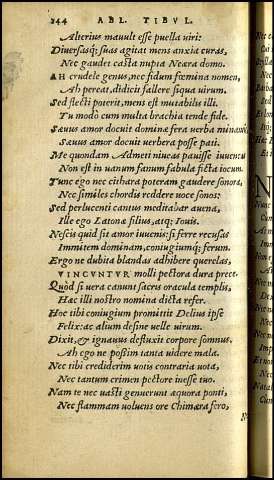 244 ALB. TIBVL.
Alterius mauult esse puella uiri:
Diuersasq; suas agitat mens anxia curas,
Nec gaudet casta nupta Neæra domo.
AH crudele genus, nec fidum fœmina nomen,
Ah pereat, didicit fallere siqua uirum.
Sed flecti poterit, mens est mutabilis illi.
Tu modo cum multa brachia tende fide.
Sæuus amor docuit dominæ fera uerba minantis
Sæuus amor docuit uerbera posse pati.
Me quondam Admeti niueas pauisse iuuencas
Non est in uanum fanum fabula ficta iocum.
Tunc ego nec cithara poteram gaudere sonora,
Nec similes chordis reddere uoce sonos:
Sed perlucenti cantus meditabar auena,
Ille ego Latonæ filius, atq; Iouis.
Nescis quid sit amor iuuenis: si ferre recusas
Immitem dominam, coniugiumq; ferum.
Ergo ne dubita blandas adhibere querelas,
VINCVNTVR molli pectora dura prece.
Quòd si uera canunt sacris oracula templis,
Hæc illi nostro nomina dicta refer.
Hoc tibi coniugium promittit Delius ipse
Felix: ac alium desine uelle uirum.
Dixit, & ignauus defluxit corpore somnus.
Ah ego ne possim tanta uidere mala.
Nec tibi crediderim uotis contraria uota,
Nec tantum crimen pectore inesse tuo.
Nam te nec uasti genuerunt æquora ponti,
Nec flammam uoluens ore Chimæra fero,